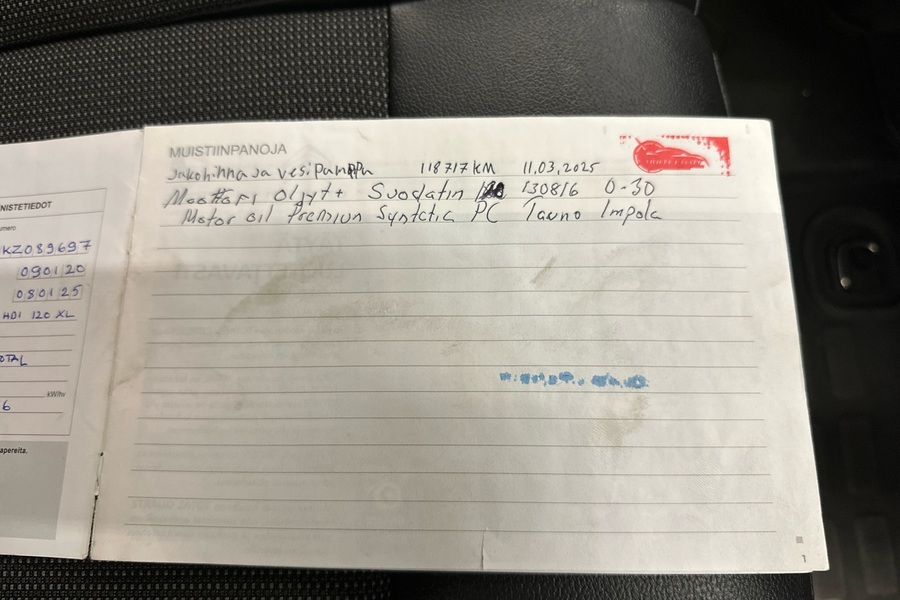 MUISTIINPANOJA
Jakohihna ja vesipumppu 118 717 KM 11.03.2025
Moottori Öljyt + Suodatin 130816 0-30
Motor oil Premium Syntetic PC Tauno Impola
NISTETIEDOT
KZ089697
090120
080125
HDI 120 XL
OTAL
kW/hv
6
apereita.
1